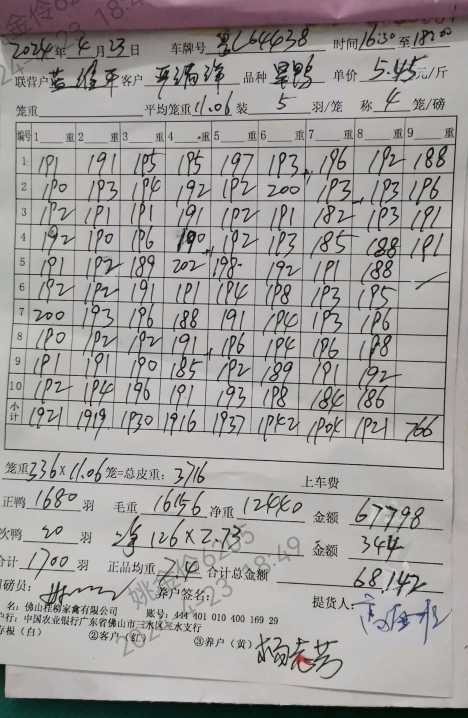 2024年4月23日 车牌号 C64438 时间16:30至18:00
联营户 客户 品种 单价5.45元/斤
笼重 平均笼重11.06装5羽/笼 称4笼/磅
编号 1 重 2 重 3 重 4 重 5 重 6 重 7 重 8 重 9 重
1 191 191 195 195 197 193 196 192 188
2 190 193 194 192 192 200 193 193 196
3 192 191 191 191 192 191 182 193 191
4 192 190 196 190 192 193 185 188 191
5 191 192 189 202 198 192 191 188
6 192 192 191 191 194 198 193 195
7 200 193 196 188 191 194 193 196
8 190 192 192 191 196 194 196 198
9 191 191 190 185 192 189 191 192
10 192 194 196 191 193 198 184 186
小计 1921 1919 1930 1916 1937 1942 1904 1921 766
笼重336×11.06笼=总皮重:3716 上车费
正鸭1680羽 毛重16156净重12440 金额67798
次鸭20羽 净126×2.73 金额344
合计1700羽 正品均重7.4 合计总金额68.142
司磅员: 养户签名: 提货人:
名:佛山桂柳家禽有限公司 账号:444 401 010 400 169 29
户行:中国农业银行广东省佛山市三水区三水支行
存根(白) ②客户(红) ③养户(黄)
姚金伶6265
2024-4-23 18:49